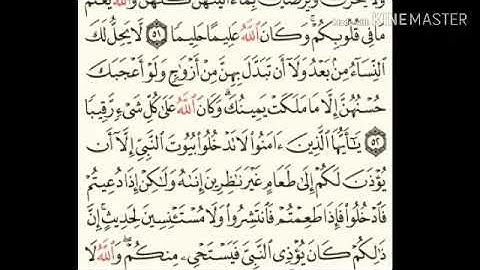 KINEMASTER
ولا يحزن ويرضين بما ءاتيتهن كلهن والله يعلم
مَا فِي قُلُوبِكُمْ وَكَانَ ٱللَّهُ عَلِيمًا حَلِيمًا ٥١ لَّا يَحِلُّ لَكَ
ٱلنِّسَآءُ مِنۢ بَعْدُ وَلَآ أَن تَبَدَّلَ بِهِنَّ مِنْ أَزْوَٰجٍ وَلَوْ أَعْجَبَكَ
حُسْنُهُنَّ إِلَّا مَا مَلَكَتْ يَمِينُكَ ۗ وَكَانَ ٱللَّهُ عَلَىٰ كُلِّ شَىْءٍ رَّقِيبًا
٥٢ يَٰٓأَيُّهَا ٱلَّذِينَ ءَامَنُوا۟ لَا تَدْخُلُوا۟ بُيُوتَ ٱلنَّبِىِّ إِلَّآ أَن
يُؤْذَنَ لَكُمْ إِلَىٰ طَعَامٍ غَيْرَ نَٰظِرِينَ إِنَىٰهُ وَلَٰكِنْ إِذَا دُعِيتُمْ
فَٱدْخُلُوا۟ فَإِذَا طَعِمْتُمْ فَٱنتَشِرُوا۟ وَلَا مُسْتَـْٔنِسِينَ لِحَدِيثٍ ۚ إِنَّ
ذَٰلِكُمْ كَانَ يُؤْذِى ٱلنَّبِىَّ فَيَسْتَحْىِۦ مِنكُمْ ۖ وَٱللَّهُ لَا